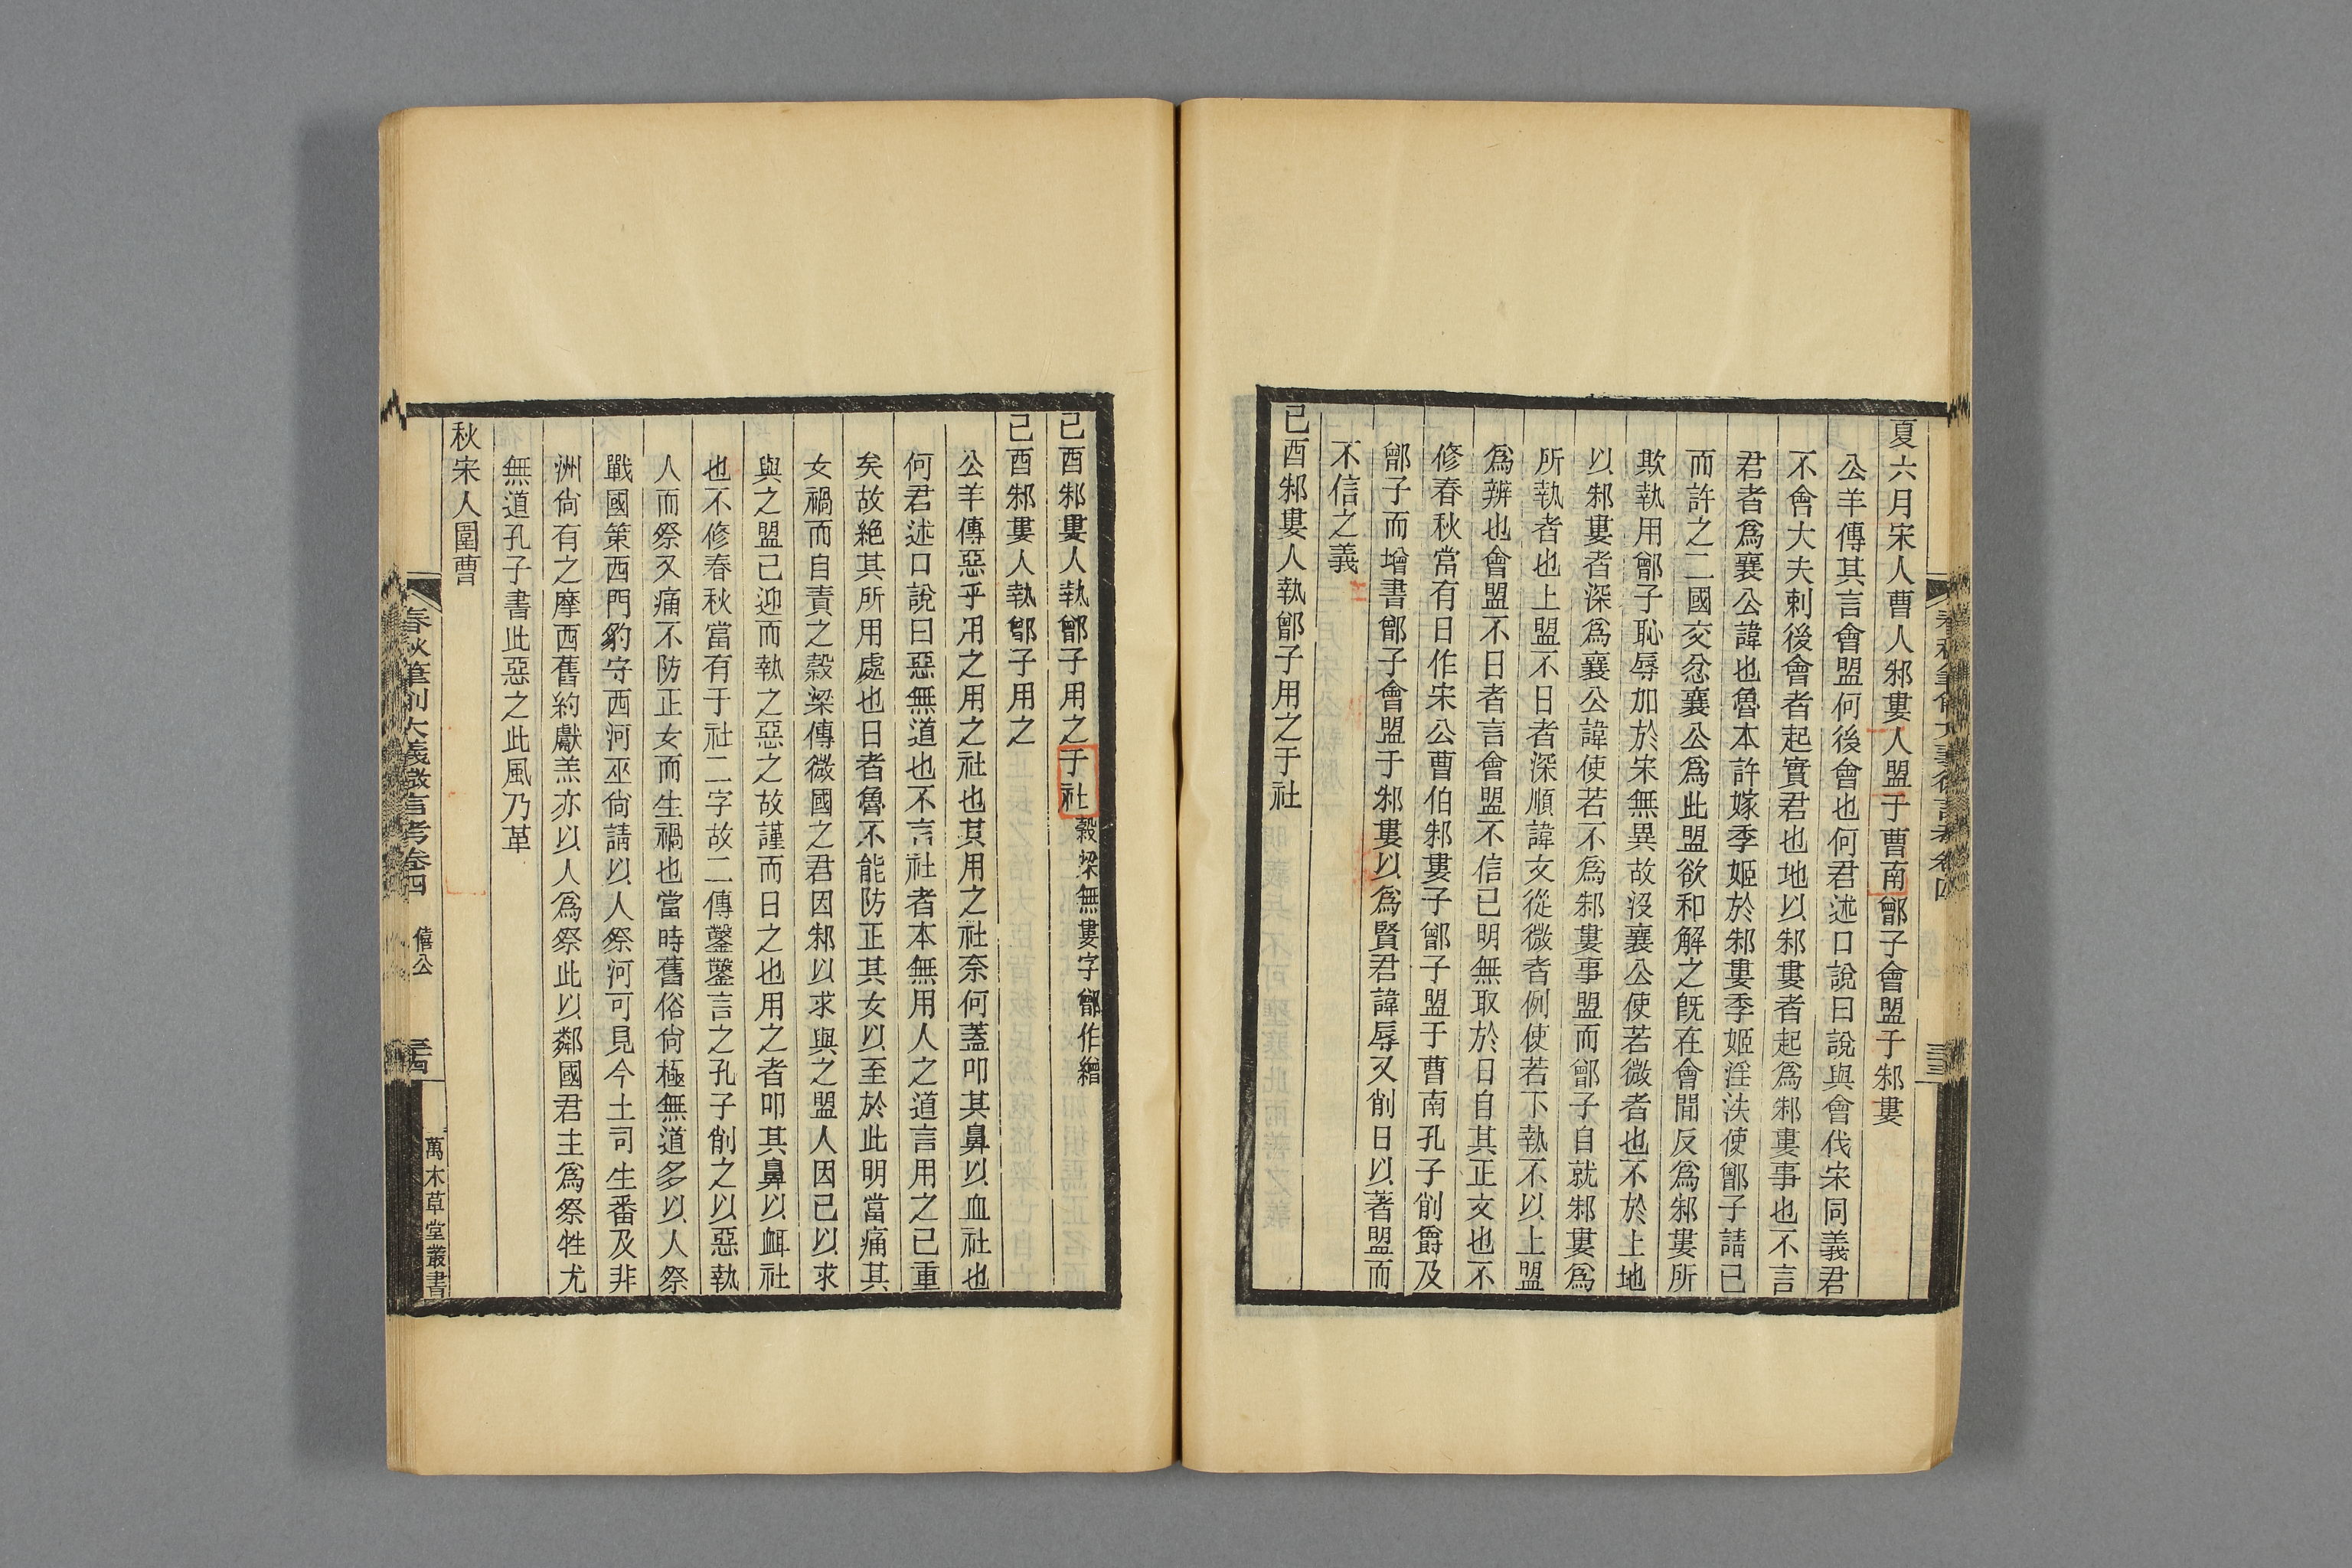 夏六月宋人曹人邾婁人盟于曹南鄫子會盟于邾婁
公羊傳其言會盟何後會也何君述口說曰說與會伐宋同義君
不會大夫刺後會者起實君也地以邾婁者起爲邾婁事也不言
君者爲襄公諱也魯本許嫁季姬於邾婁季姬淫泆使鄫子請已
而許之二國交忿襄公爲此盟欲和解之旣在會間反爲邾婁所
欺執用鄫子恥辱加於宋無異故沒襄公使若微者也不於上地
以邾婁者深爲襄公諱使若不爲邾婁事盟而鄫子自就邾婁爲
所執者也上盟不日者深順諱文從微者例使若下執不以上盟
爲辨也會盟不日者言會盟不信已明無取於日自其正文也不
修春秋當有日作宋公曹伯邾婁子鄫子盟于曹南孔子削爵及
鄫子而增書鄫子會盟于邾婁以爲賢君諱辱又削日以著盟而
不信之義
已酉邾婁人執鄫子用之于社
已酉邾婁人執鄫子用之于社穀梁無婁字鄫作繒
已酉邾婁人執鄫子用之
公羊傳惡乎用之用之社也其用之社奈何蓋叩其鼻以血社也
何君述口說曰惡無道也不言社者本無用人之道言用之已重
矣故絶其所用處也日者魯不能防正其女以至於此明當痛其
女禍而自責之穀梁傳微國之君因邾以求與之盟人因已以求
與之盟已迎而執之惡之故謹而日之也用之者叩其鼻以衈社
也不修春秋當有于社二字故二傳鑿鑿言之孔子削之以惡執
人而祭又痛不防正女而生禍也當時舊俗尙極無道多以人祭
戰國策西門豹守西河巫尙請以人祭河可見今土司生番及非
洲尙有之摩西舊約獻羔亦以人爲祭此以鄰國君主爲祭牲尤
無道孔子書此惡之此風乃革
秋宋人圍曹
春秋筆削大義微言考卷四 僖公 三十四 萬木草堂叢書